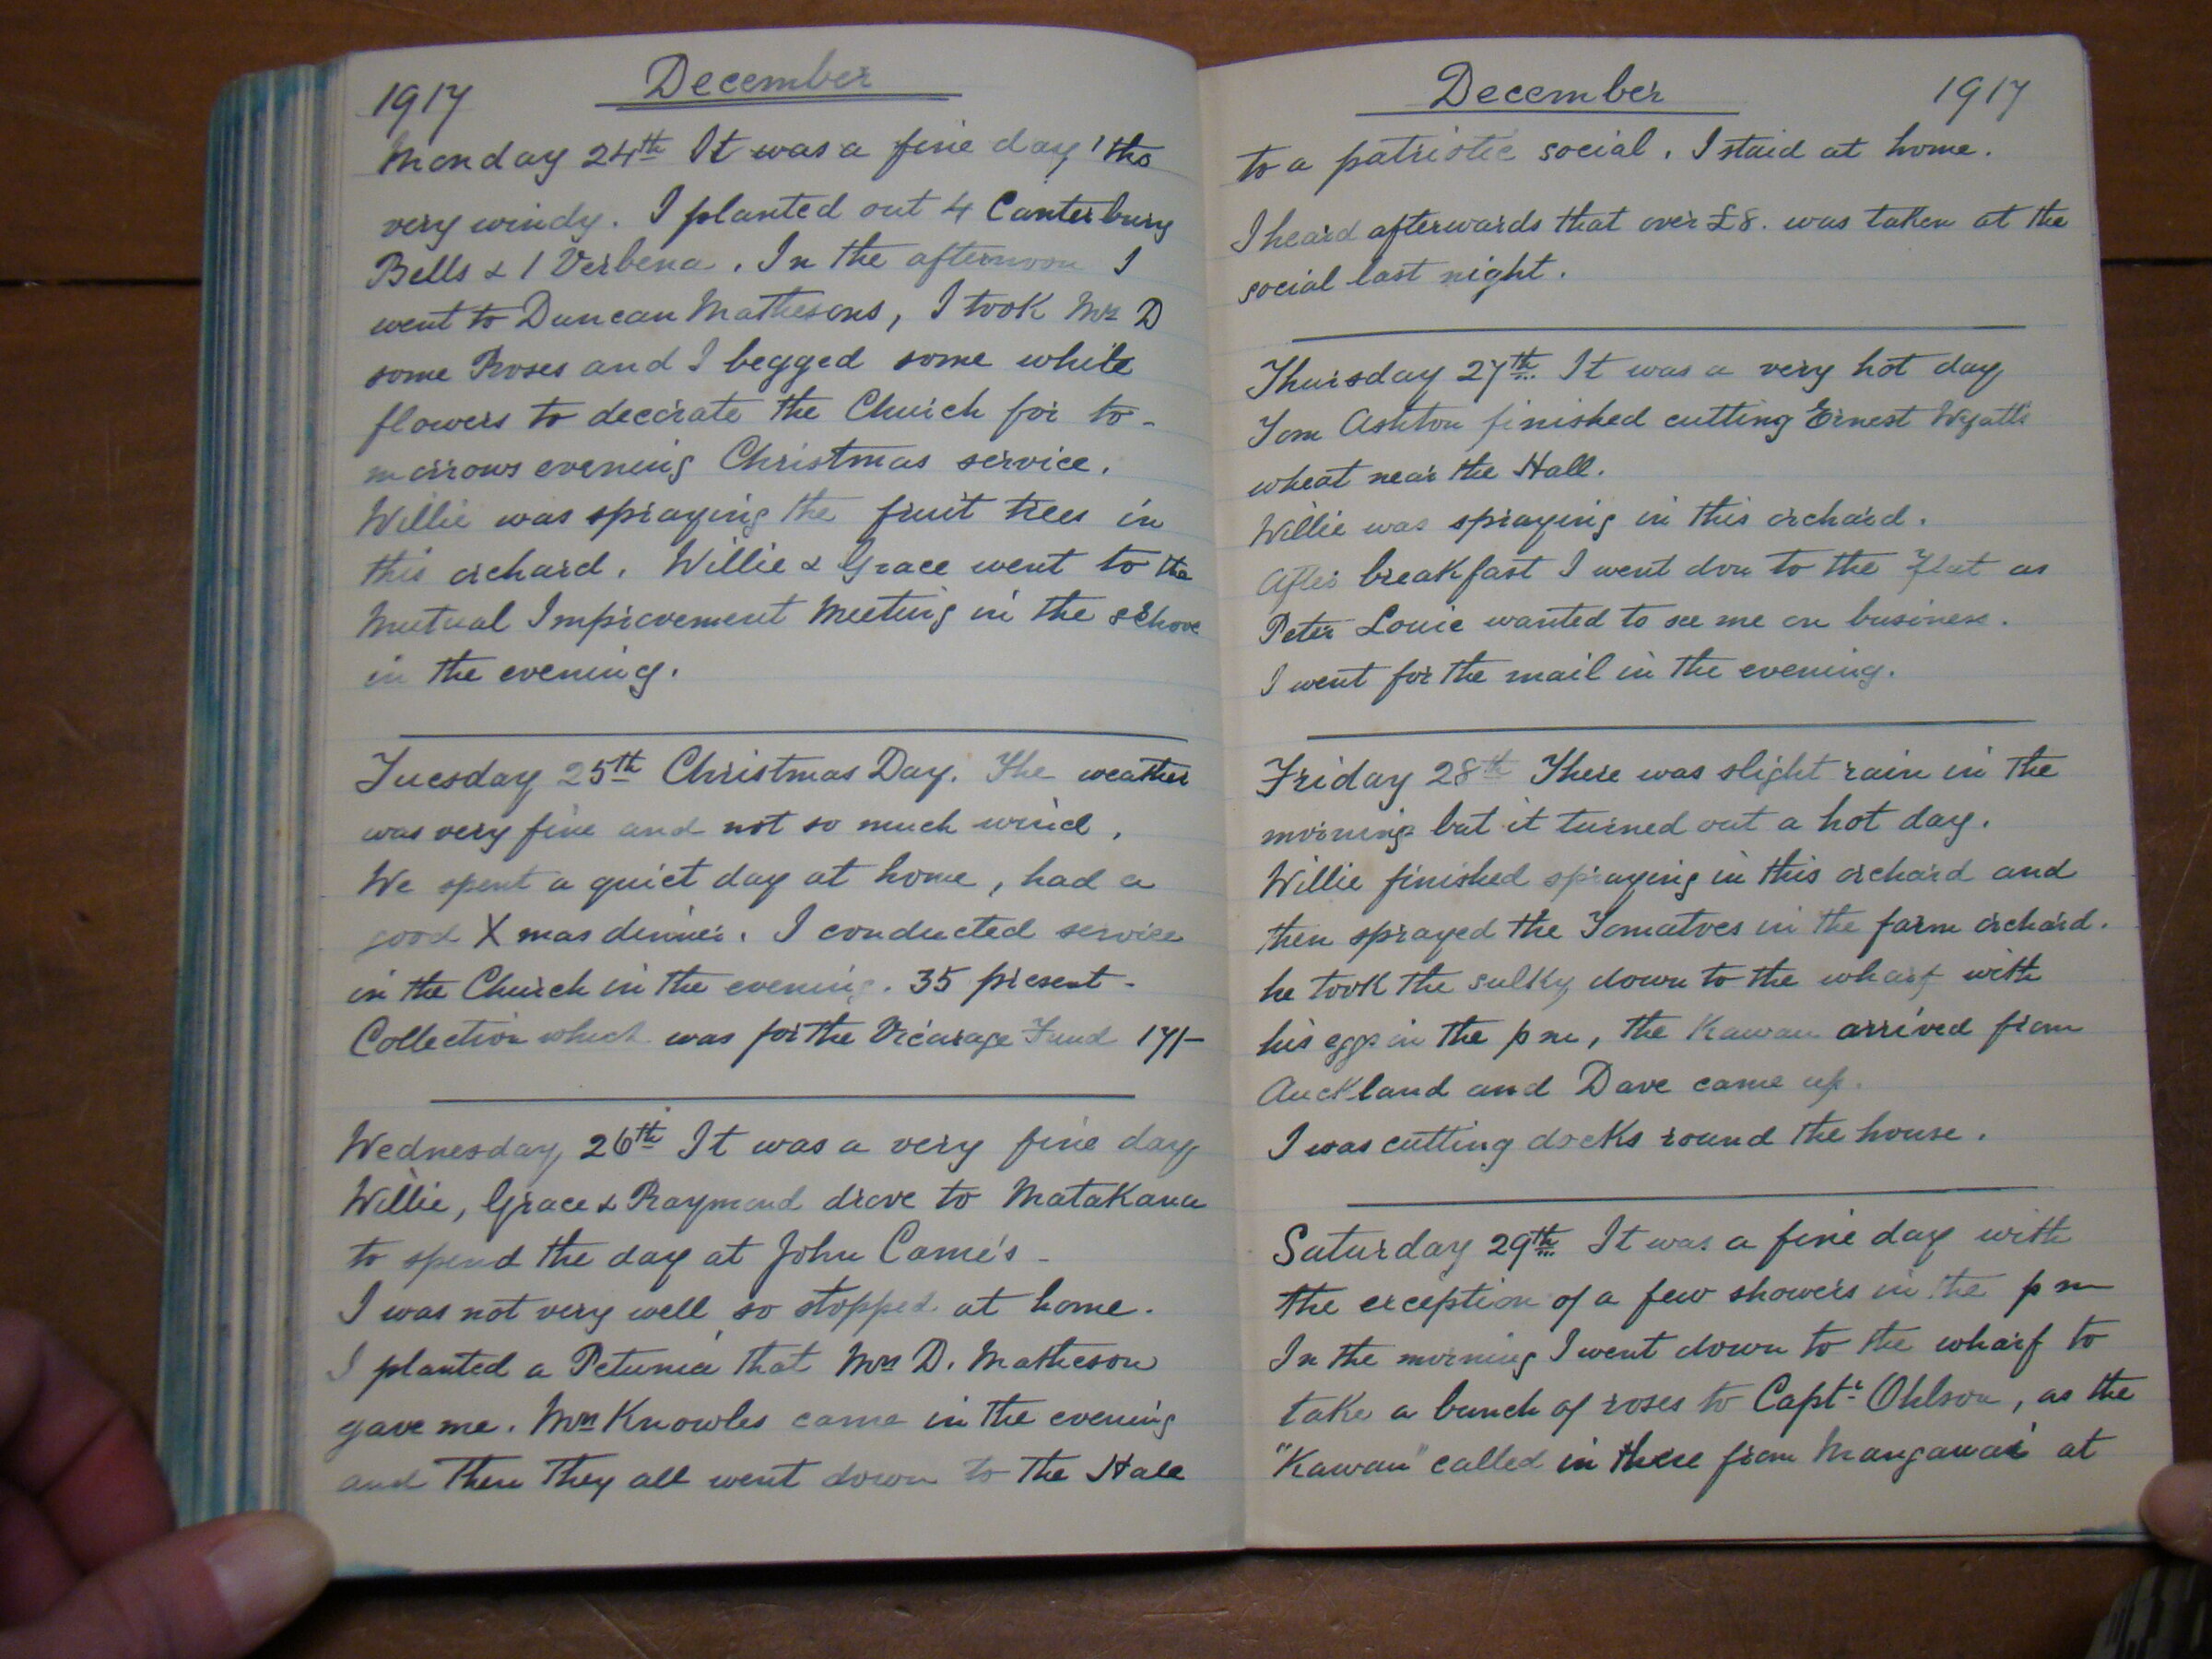 1917 December
Monday 24th It was a fine day, tho
very windy. I planted out 4 Canterbury
Bells & 1 Verbena. In the afternoon I
went to Duncan Mathesons, I took Mrs D
some Roses and I begged some white
flowers to decorate the Church for to-
morrows evening Christmas service.
Willie was spraying the fruit trees in
this orchard. Willie & Grace went to the
Mutual Improvement Meeting in the
in the evening.
Tuesday 25th Christmas Day. The weather
was very fine and not so much wind.
We spent a quiet day at home, had a
good Xmas dinner. I conducted service
in the Church in the evening. 35 present-
Collection which was for the Vicarage Fund 17/-
Wednesday 26th It was a very fine day
Willie, Grace & Raymond drove to Matakana
to spend the day at John
I was not very well so stopped at home.
I planted a Petunia that Mrs D. Matheson
gave me. Mrs Knowles came in the evening
and then they all went down to the Hall
December 1917
to a patriotic social. I staid at home.
I heard afterwards that over £8. was taken at the
social last night.
Thursday 27th It was a very hot day
Tom Ashton finished cutting Ernest Wyatts
wheat near the Hall.
Willie was spraying in this orchard.
After breakfast I went don to the Flat as
Peter Louie wanted to see me on business.
I went for the mail in the evening.
Friday 28th There was slight rain in the
morning but it turned out a hot day.
Willie finished spraying in this orchard and
then sprayed the Tomatoes in the farm orchard.
he took the sulky down to the wharf with
his eggs in the pm, the Kawau arrived from
Auckland and Dave came up.
I was cutting docks round the house.
Saturday 29th It was a fine day with
the exception of a few showers in the pm
In the morning I went down to the wharf to
take a bunch of roses to Captn Ohlson, as the
"Kawau" called in there from Mangawai at